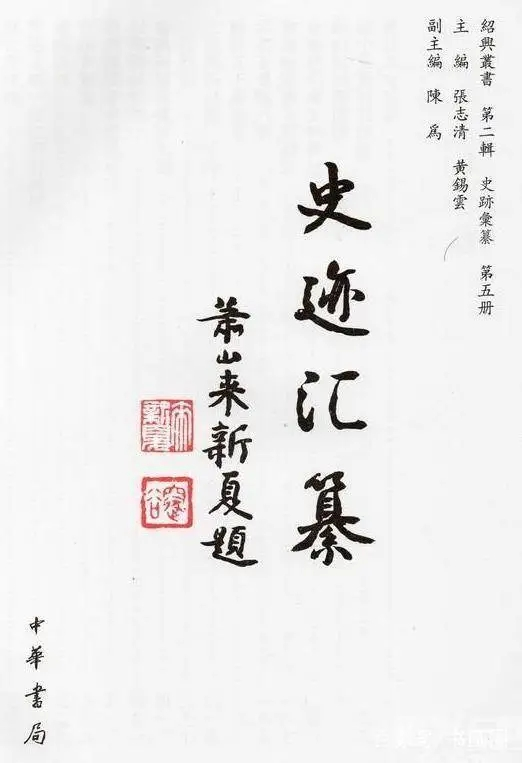 紹興叢書 第二輯 史跡彙纂 第五册
主編 張志清 黃錫雲
副主編 陳爲
史迹汇纂
萧山来新夏題
中華書局